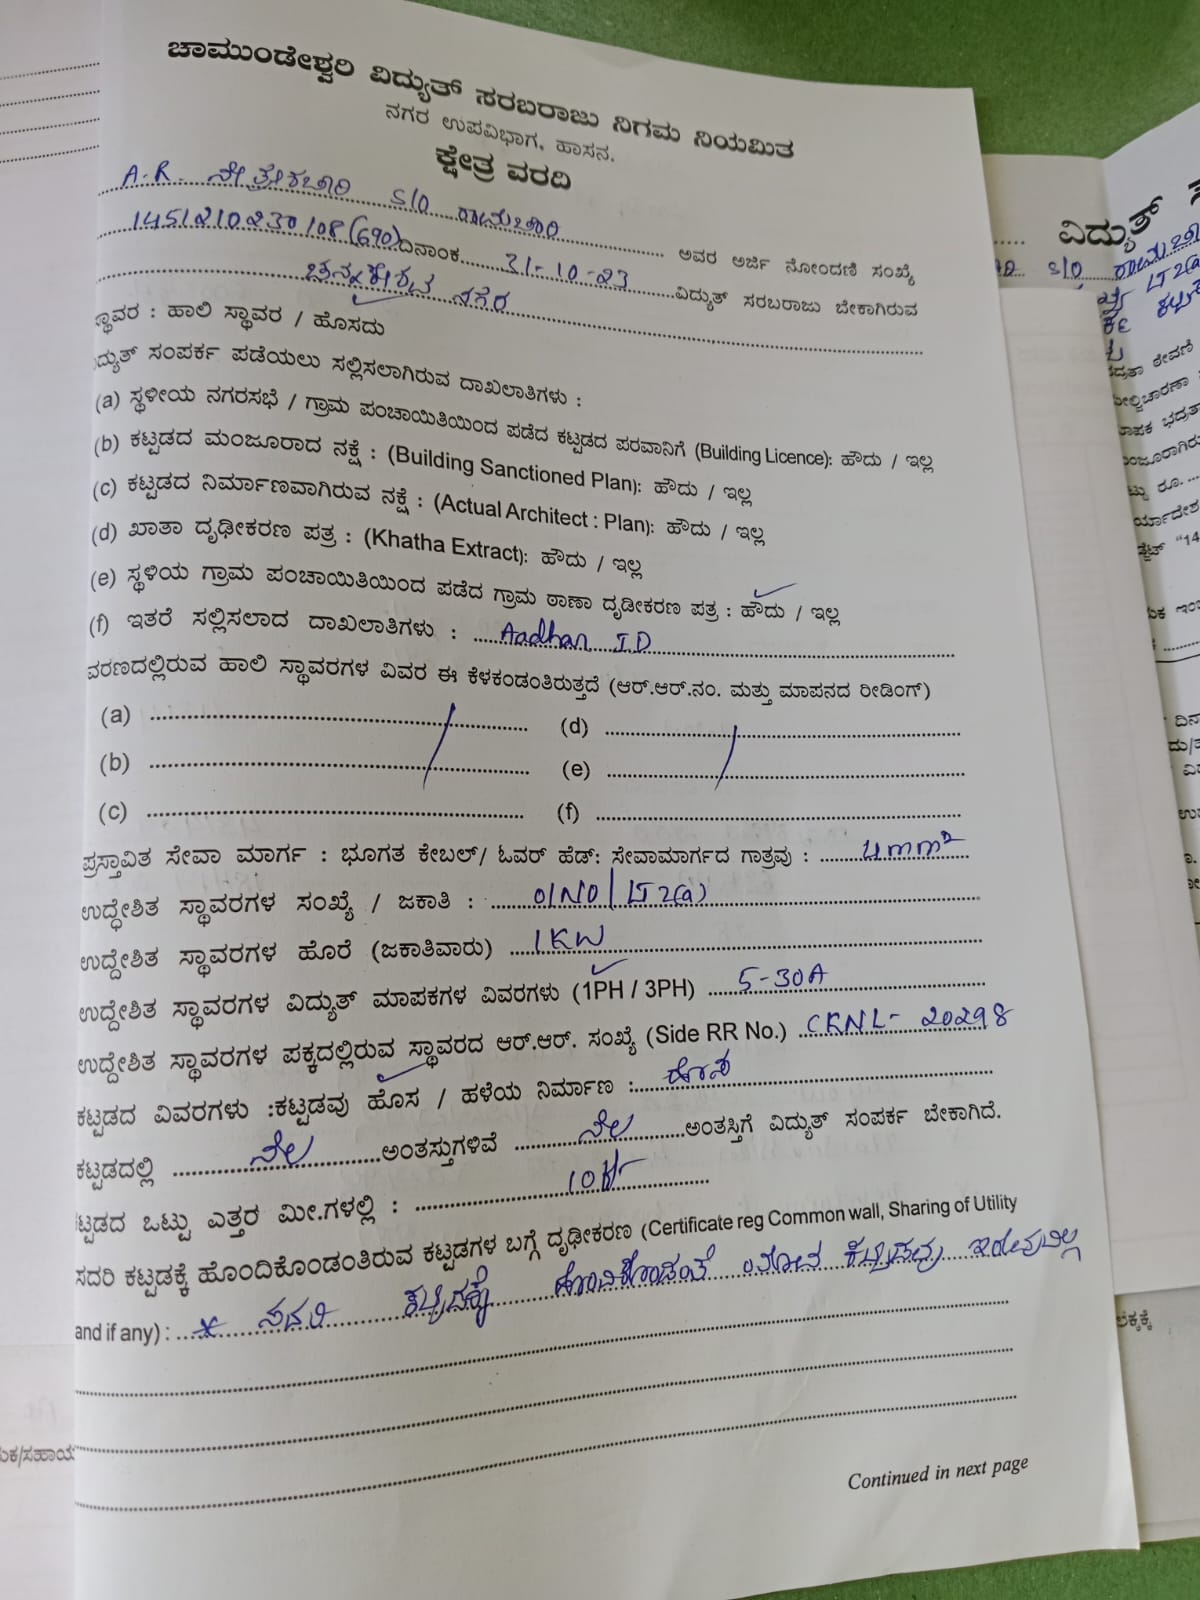 ಚಾಮುಂಡೇಶ್ವರಿ ವಿದ್ಯುತ್ ಸರಬರಾಜು ನಿಗಮ ನಿಯಮಿತ
ನಗರ ಉಪವಿಭಾಗ, ಹಾಸನ.
ಕ್ಷೇತ್ರ ವರದಿ
A.R. S/O ಅವರ ಅರ್ಜಿ ನೋಂದಣಿ ಸಂಖ್ಯೆ
1451210230108(690) ದಿನಾಂಕ 31-10-23 ವಿದ್ಯುತ್ ಸರಬರಾಜು ಬೇಕಾಗಿರುವ
ಚನ್ನಕೇಶವ ನಗರ
ಸ್ಥಾವರ : ಹಾಲಿ ಸ್ಥಾವರ / ಹೊಸದು
ದ್ಯುತ್ ಸಂಪರ್ಕ ಪಡೆಯಲು ಸಲ್ಲಿಸಲಾಗಿರುವ ದಾಖಲಾತಿಗಳು :
(a) ಸ್ಥಳೀಯ ನಗರಸಭೆ / ಗ್ರಾಮ ಪಂಚಾಯಿತಿಯಿಂದ ಪಡೆದ ಕಟ್ಟಡದ ಪರವಾನಿಗೆ (Building Licence): ಹೌದು / ಇಲ್ಲ
(b) ಕಟ್ಟಡದ ಮಂಜೂರಾದ ನಕ್ಷೆ : (Building Sanctioned Plan): ಹೌದು / ಇಲ್ಲ
(c) ಕಟ್ಟಡದ ನಿರ್ಮಾಣವಾಗಿರುವ ನಕ್ಷೆ : (Actual Architect : Plan): ಹೌದು / ಇಲ್ಲ
(d) ಖಾತಾ ದೃಢೀಕರಣ ಪತ್ರ : (Khatha Extract): ಹೌದು / ಇಲ್ಲ
(e) ಸ್ಥಳಿಯ ಗ್ರಾಮ ಪಂಚಾಯಿತಿಯಿಂದ ಪಡೆದ ಗ್ರಾಮ ಠಾಣಾ ದೃಡೀಕರಣ ಪತ್ರ : ಹೌದು / ಇಲ್ಲ
(f) ಇತರೆ ಸಲ್ಲಿಸಲಾದ ದಾಖಲಾತಿಗಳು : Aadhar ID
ವರಣದಲ್ಲಿರುವ ಹಾಲಿ ಸ್ಥಾವರಗಳ ವಿವರ ಈ ಕೆಳಕಂಡಂತಿರುತ್ತದೆ (ಆರ್.ಆರ್.ನಂ. ಮತ್ತು ಮಾಪನದ ರೀಡಿಂಗ್)
(a) (d)
(b) (e)
(c) (f)
ಪ್ರಸ್ತಾವಿತ ಸೇವಾ ಮಾರ್ಗ : ಭೂಗತ ಕೇಬಲ್/ ಓವರ್ ಹೆಡ್: ಸೇವಾಮಾರ್ಗದ ಗಾತ್ರವು : 4mm²
ಉದ್ಧೇಶಿತ ಸ್ಥಾವರಗಳ ಸಂಖ್ಯೆ / ಜಕಾತಿ : 01NO/LT2(a)
ಉದ್ದೇಶಿತ ಸ್ಥಾವರಗಳ ಹೊರೆ (ಜಕಾತಿವಾರು) 1KW
ಉದ್ದೇಶಿತ ಸ್ಥಾವರಗಳ ವಿದ್ಯುತ್ ಮಾಪಕಗಳ ವಿವರಗಳು (1PH / 3PH) 5-30A
ಉದ್ದೇಶಿತ ಸ್ಥಾವರಗಳ ಪಕ್ಕದಲ್ಲಿರುವ ಸ್ಥಾವರದ ಆರ್.ಆರ್. ಸಂಖ್ಯೆ (Side RR No.) CKNL-20298
ಕಟ್ಟಡದ ವಿವರಗಳು :ಕಟ್ಟಡವು ಹೊಸ / ಹಳೆಯ ನಿರ್ಮಾಣ : ಹೊಸ
ಕಟ್ಟಡದಲ್ಲಿ ನೆಲ ಅಂತಸ್ತುಗಳಿವೆ ನೆಲ ಅಂತಸ್ತಿಗೆ ವಿದ್ಯುತ್ ಸಂಪರ್ಕ ಬೇಕಾಗಿದೆ.
ಟ್ಟಡದ ಒಟ್ಟು ಎತ್ತರ ಮೀ.ಗಳಲ್ಲಿ :
ಸದರಿ ಕಟ್ಟಡಕ್ಕೆ ಹೊಂದಿಕೊಂಡಂತಿರುವ ಕಟ್ಟಡಗಳ ಬಗ್ಗೆ ದೃಢೀಕರಣ (Certificate reg Common wall, Sharing of Utility
and if any) : * ಸದರಿ ಕಟ್ಟಡಕ್ಕೆ ಹೊಂದಿಕೊಂಡಂತೆ ಯಾವ ಕಟ್ಟಡವು ಇರುವುದಿಲ್ಲ
Continued in next page
ವಿದ್ಯುತ್ ಸ
S/O
LT2(a)
ರೂ.
"14
ಲಕ್ಕಕ್ಕೆ